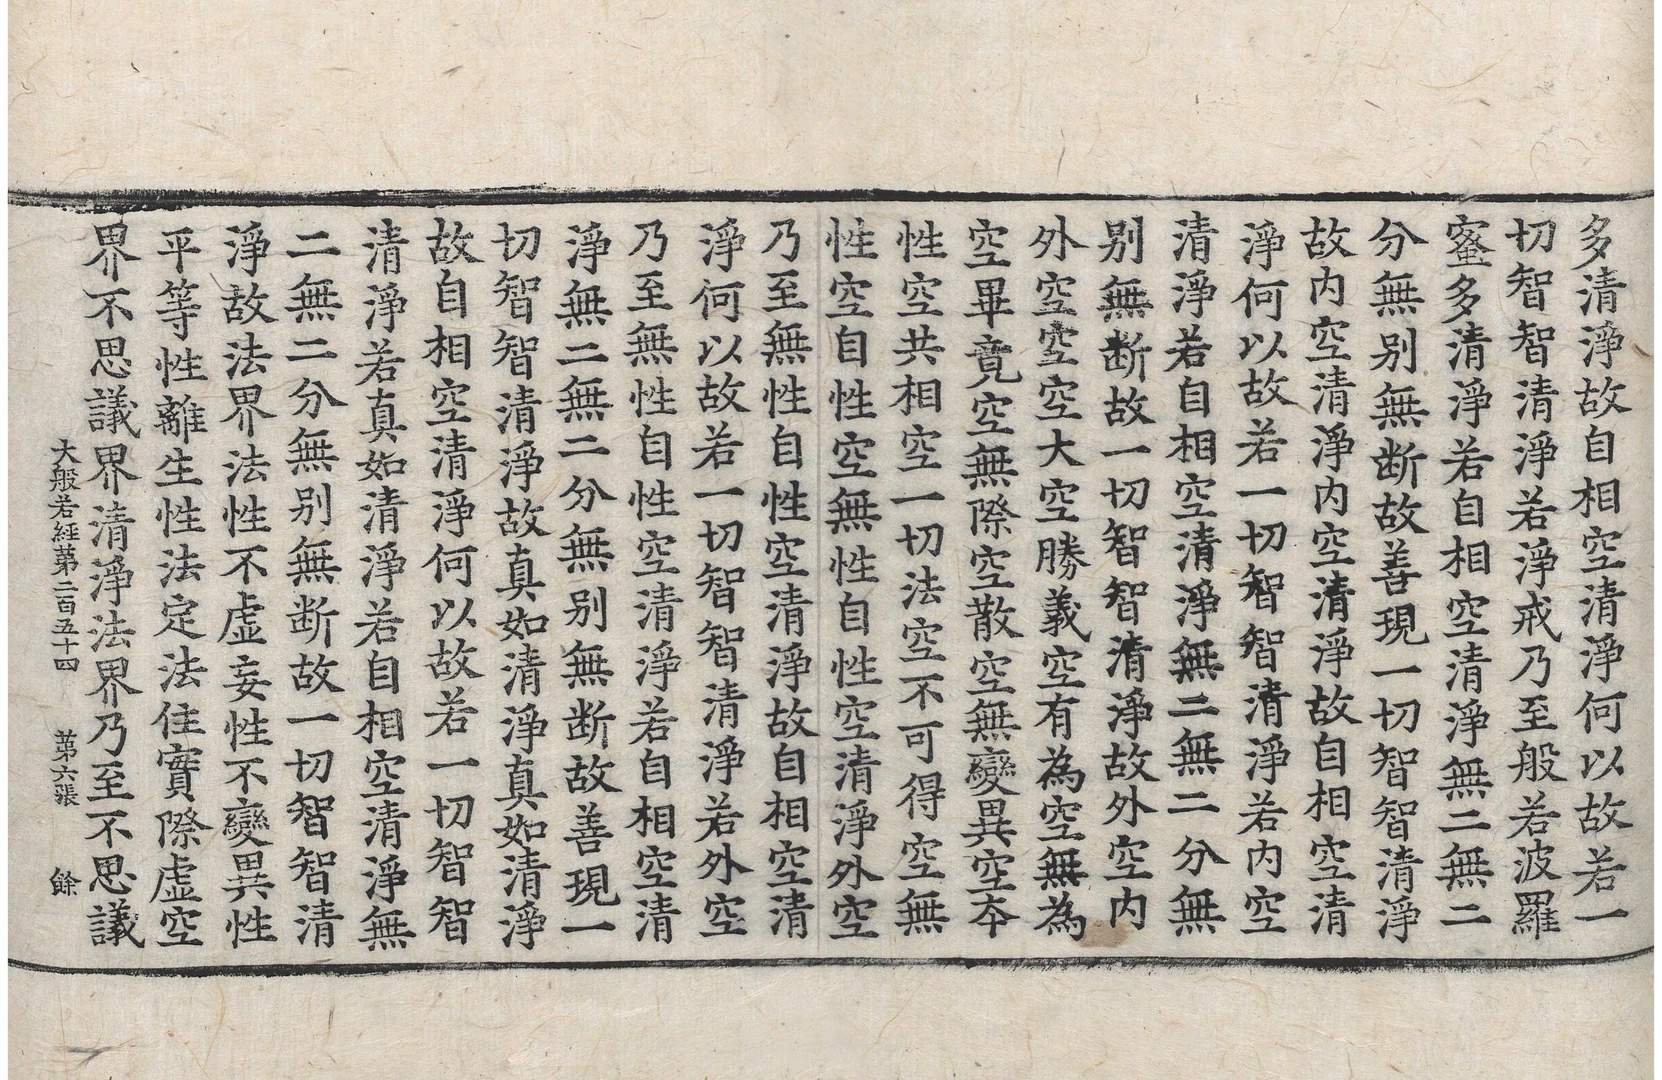 多清淨故自相空清淨何以故若一
切智智清淨若淨戒乃至般若波羅
蜜多清淨若自相空清淨無二無二
分無別無断故善現一切智智清淨
故內空清淨內空清淨故自相空清
淨何以故若一切智智清淨若內空
清淨若自相空清淨無二無二分無
別無断故一切智智清淨故外空內
外空空空大空勝義空有為空無為
空畢竟空無際空散空無變異空夲
性空共相空一切法空不可得空無
性空自性空無性自性空清淨外空
乃至無性自性空清淨故自相空清
淨何以故若一切智智清淨若外空
乃至無性自性空清淨若自相空清
淨無二無二分無別無断故善現一
切智智清淨故真如清淨真如清淨
故自相空清淨何以故若一切智智
清淨若真如清淨若自相空清淨無
二無二分無別無断故一切智智清
淨故法界法性不虛妄性不變異性
平等性離生性法定法住實際虛空
界不思議界清淨法界乃至不思議
大般若経苐二百五十四 苐六張 餘